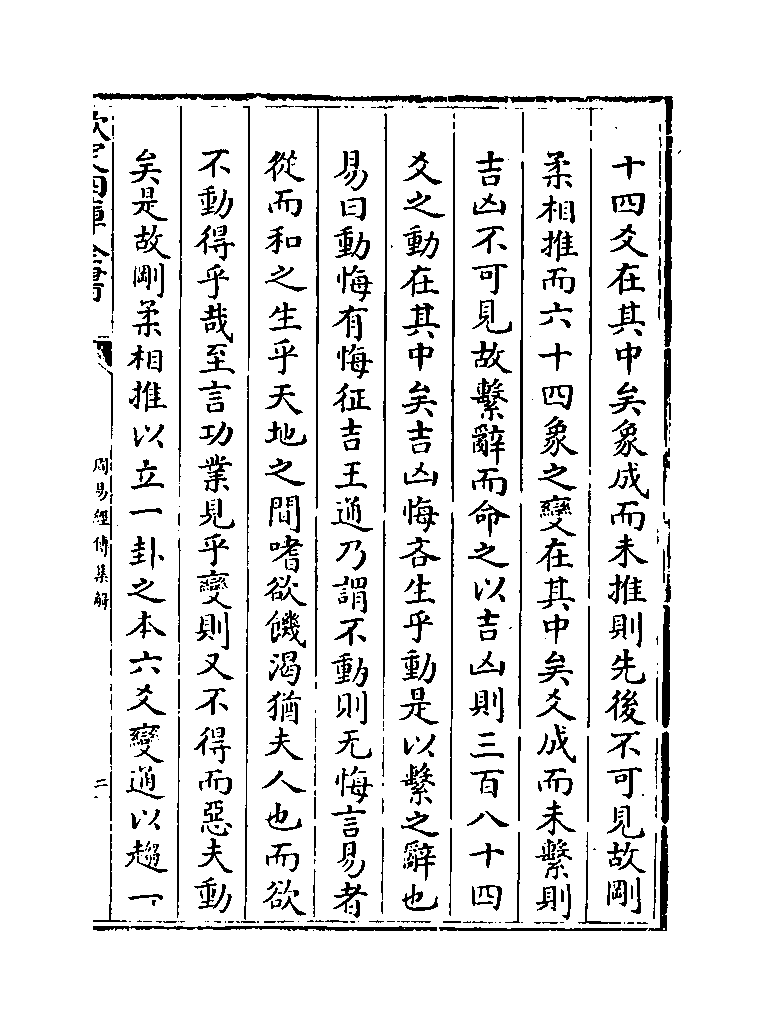 十四爻在其中矣象成而未推則先後不可見故剛
柔相推而六十四象之變在其中矣爻成而未繫則
吉凶不可見故繫辭而命之以吉凶則三百八十四
爻之動在其中矣吉凶悔吝生乎動是以繫之辭也
易曰動悔有悔征吉王通乃謂不動則无悔言易者
從而和之生乎天地之間嗜欲饑渴猶夫人也而欲
不動得乎哉至言功業見乎變則又不得而惡夫動
矣是故剛柔相推以立一卦之本六爻變通以趨一
欽定四庫全書
周易經傳集解
二